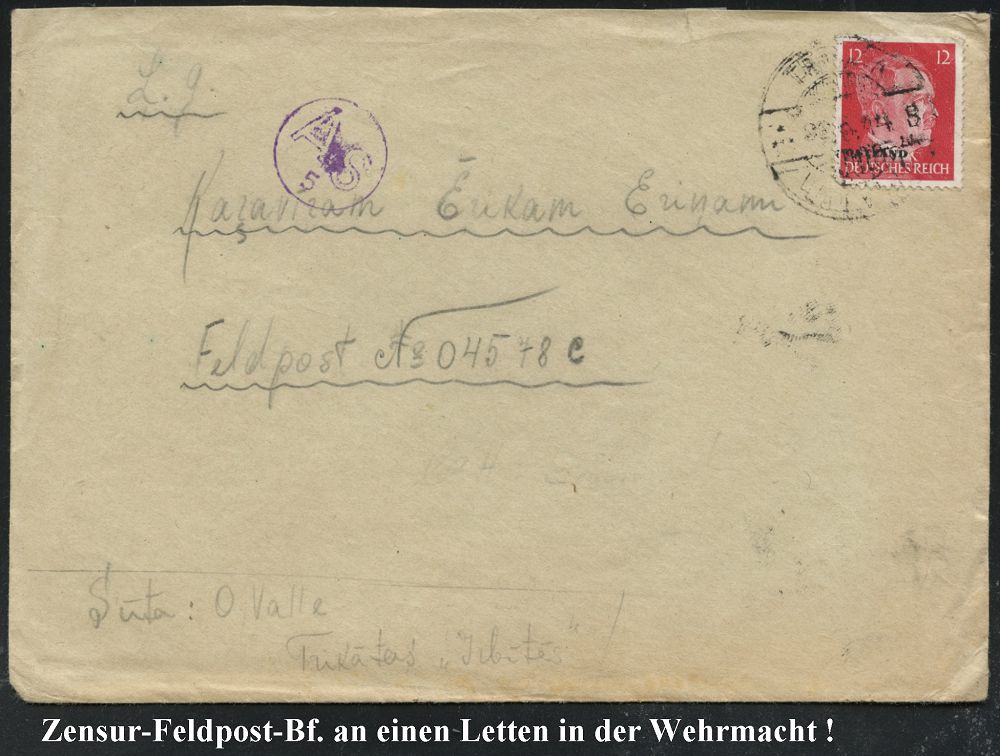 L. g.
12 12
OSTLAND
DEUTSCHES REICH
Kaŗavīram Ērikam Eriņam
Feldpost № 04578 C
Sūta: O. Valle
Trikātas „Irbītēs”
Zensur-Feldpost-Bf. an einen Letten in der Wehrmacht !